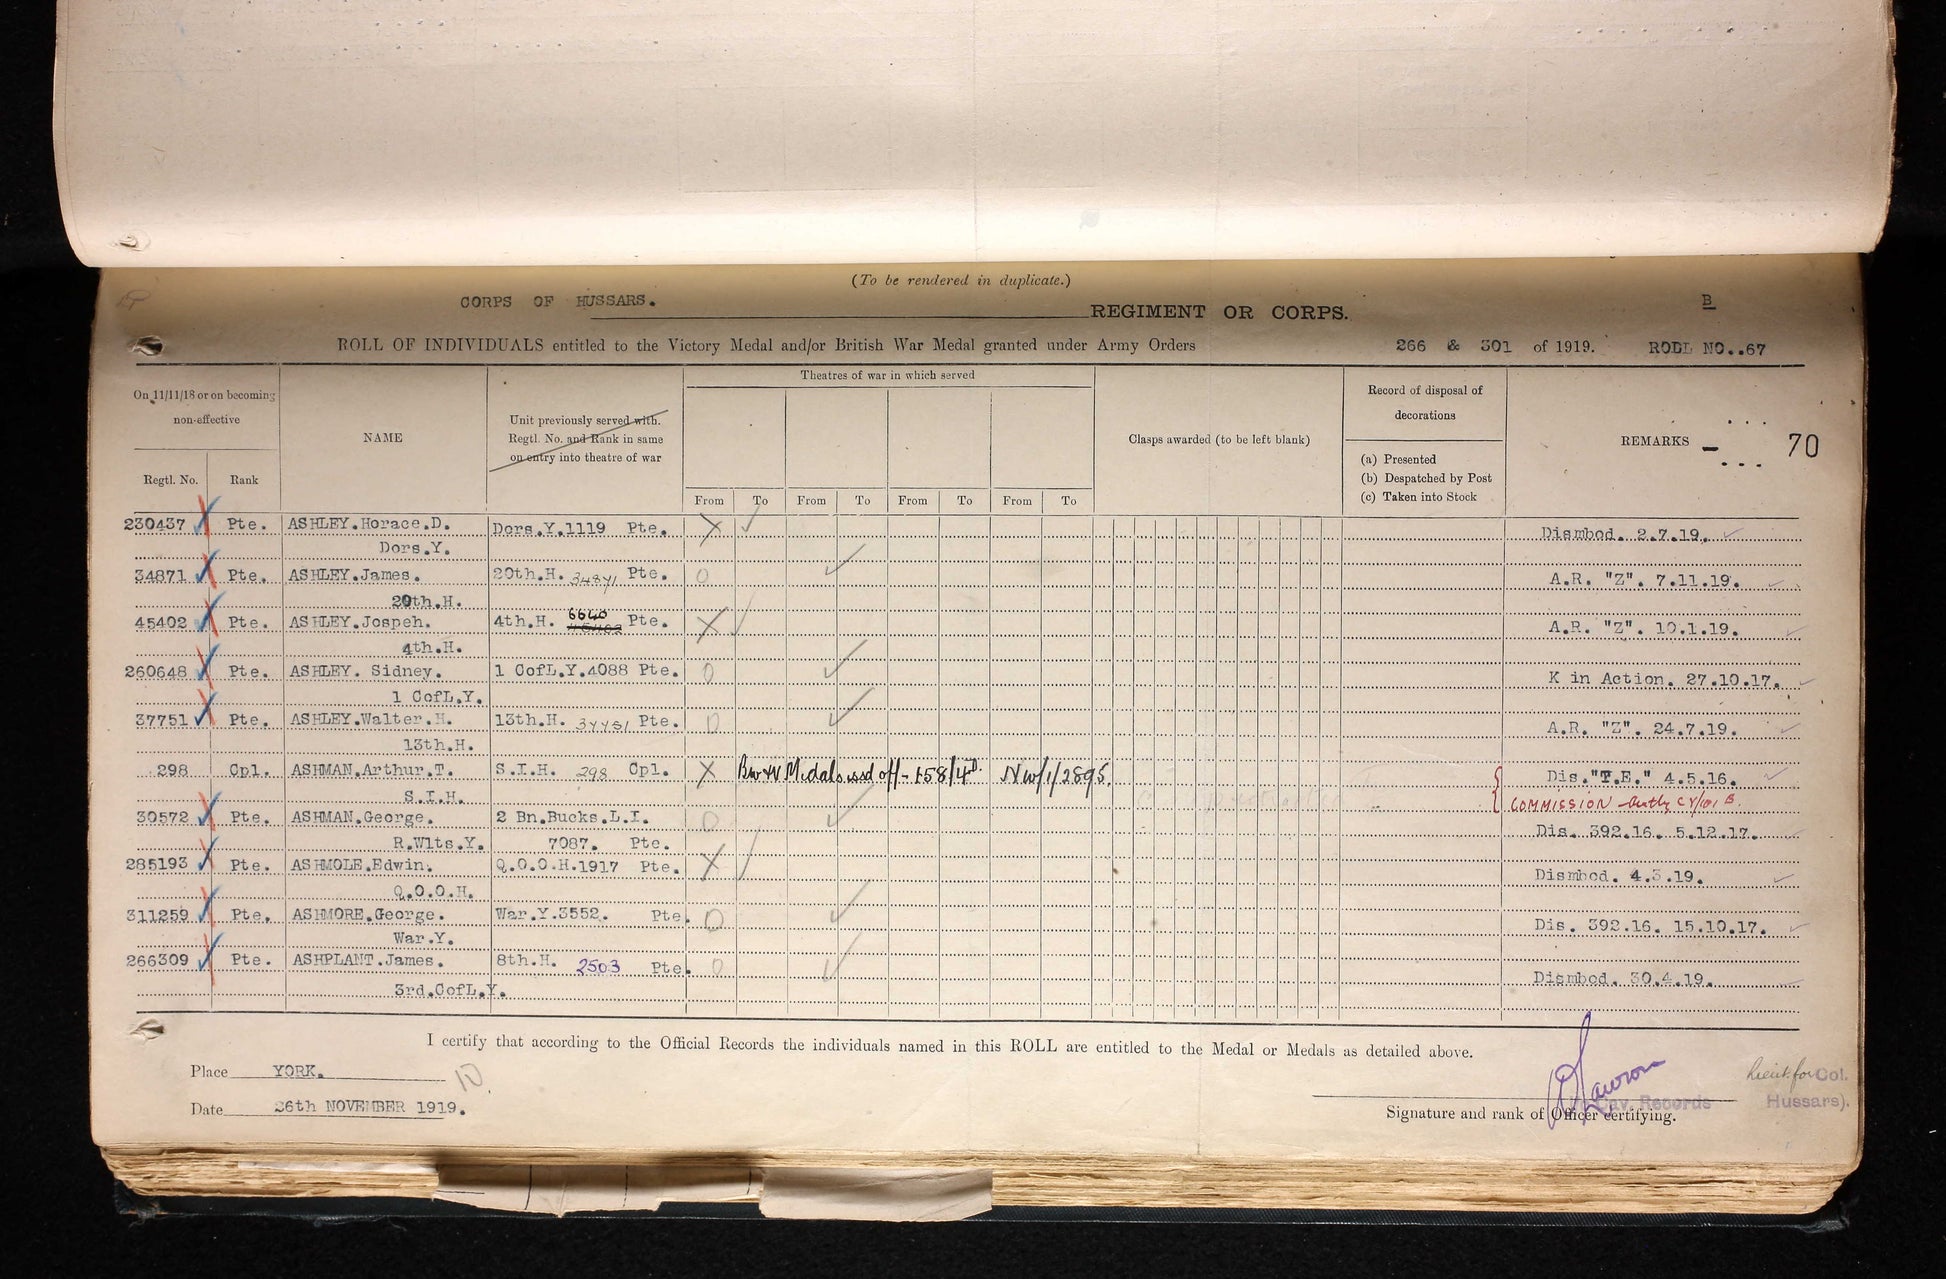 (To be rendered in duplicate.)
CORPS OF HUSSARS. REGIMENT OR CORPS. B
ROLL OF INDIVIDUALS entitled to the Victory Medal and/or British War Medal granted under Army Orders 266 & 301 of 1919. ROLL NO..67
On 11/11/18 or on becoming non-effective
Regtl. No. Rank
NAME
Unit previously served with.
Regtl. No. and Rank in same
on entry into theatre of war
Theatres of war in which served
From To From To From To From To
Clasps awarded (to be left blank)
Record of disposal of
decorations
(a) Presented
(b) Despatched by Post
(c) Taken into Stock
REMARKS 70
230437 Pte. ASHLEY.Horace.D. Dors.Y.1119 Pte. X Dismbod. 2.7.19.
Dors.Y.
34871 Pte. ASHLEY.James. 20th.H. 34871 Pte. O A.R. "Z". 7.11.19.
20th.H.
45402 Pte. ASHLEY.Jospeh. 4th.H. 6640 45402 Pte. X A.R. "Z". 10.1.19.
4th.H.
260648 Pte. ASHLEY. Sidney. 1 CofL.Y.4088 Pte. O K in Action. 27.10.17.
1 CofL.Y.
37751 Pte. ASHLEY.Walter.H. 13th.H. 37751 Pte. O A.R. "Z" 24.7.19.
13th.H.
298 Cpl. ASHMAN.Arthur.T. S.I.H. 298 Cpl. X BW & V Medals issd off- 158/4D NW/1/2895. Dis."T.E." 4.5.16.
S.I.H. COMMISSION Authy CY/101 B.
30572 Pte. ASHMAN.George. 2 Bn.Bucks.L.I. O Dis. 392.16. 5.12.17.
R.Wlts.Y. 7087. Pte.
285193 Pte. ASHMOLE.Edwin. Q.O.O.H.1917 Pte. X Dismbod. 4.3.19.
Q.O.O.H.
311259 Pte. ASHMORE.George. War.Y.3552. Pte. O Dis. 392.16. 15.10.17.
War.Y.
266309 Pte. ASHPLANT.James. 8th.H. 2503 Pte. O Dismbod. 30.4.19.
3rd.CofL.Y.
I certify that according to the Official Records the individuals named in this ROLL are entitled to the Medal or Medals as detailed above.
Place YORK. 10
Date 26th NOVEMBER 1919.
Lawson Lieut. for Col.
Cav. Records Hussars).
Signature and rank of Officer certifying.